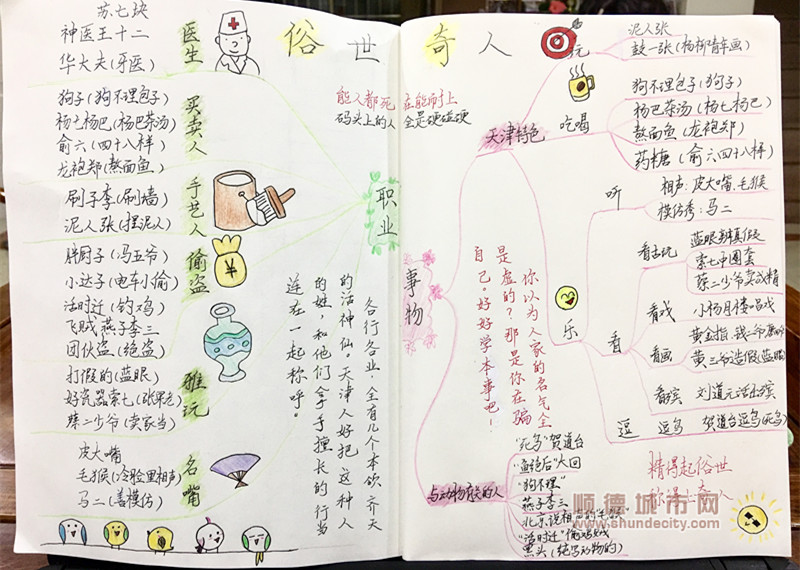 俗世奇人
苏七块
神医王十二
华大夫(牙医)
医生
狗子(狗不理包子)
杨七杨巴(杨巴茶汤)
俞六(四十八样)
龙袍郑(熬面鱼)
买卖人
刷子李(刷墙)
泥人张(捏泥人)
手艺人
胖厨子(冯五爷)
小达子(电车小偷)
活时迁(钓鸡)
飞贼燕子李三
团伙盗(绝盗)
偷盗
打假的(蓝眼)
好瓷器索七(张果老)
蔡二少爷(卖家当)
雅玩
皮大嘴
毛猴(冷脸里相声)
马二(善模仿)
名嘴
能人都死在能耐上
码头上的人全是硬碰硬
职业
各行各业,全有几个本领齐天
的活神仙。天津人好把这种人
的姓,和他们拿手擅长的行当
连在一起称呼。
事物
天津特色
玩
泥人张
鼓一张(杨柳青年画)
吃喝
狗不理包子(狗子)
杨巴茶汤(杨七杨巴)
熬面鱼(龙袍郑)
药糖(俞六四十八样)
你以为人家的名气全
是虚的?那是你在骗
自己。好好学本事吧!
乐
听
相声:皮大嘴、毛猴
模仿秀:马二
看
看古玩
蓝眼辨真假
索七中圈套
蔡二少爷卖
看戏
小杨月楼唱戏
看画
黄金指、钱二爷
黄三爷造假(蓝眼)
看殡
刘道元活出殡
逗
逗鸟
贺道台逗鸟(死鸟)
与动物有关的人
“死鸟”贺道台
大回
“狗不理”
燕子李三
北京说相声的
“活时迁”偷鸡
黑头
精得起俗世
顺德城市网
www.shundecity.com